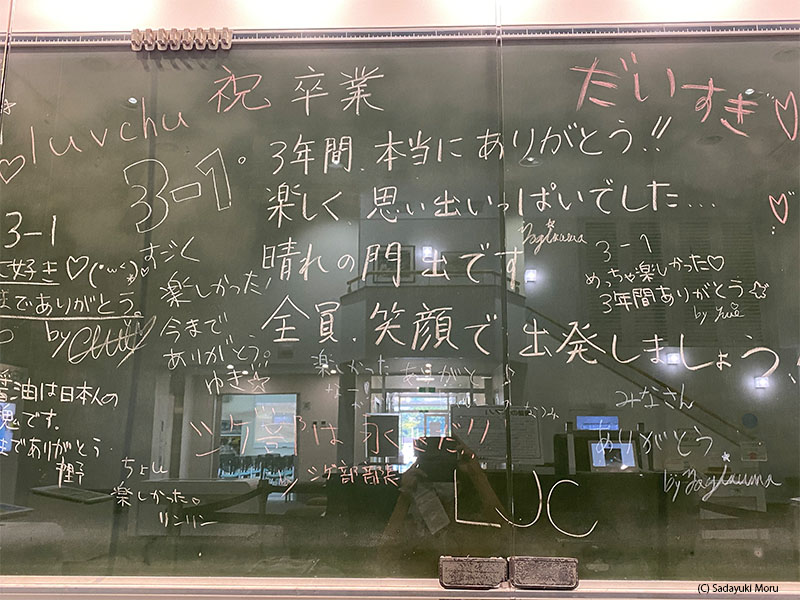 luvchu 祝 卒業
だいすき
3-1
3年間、本当にありがとう!!
楽しく、思い出いっぱいでした....
晴れの門出です
全員、笑顔で出発しましょう
Yagikuma
3-1
めっちゃ楽しかった♡
3年間ありがとう
by Yuie
3-1
好き♡
までありがとう。
by
すごく
楽しかった!
今まで
ありがとう。
ゆき
醤油は日本人の
魂です。
までありがとう
ちょい
楽しかった。
リンリン
楽しかった
ありがと
は永
部部長
みなさん
ありがとう
by Yagikuma
LUC
(C) Sadayuki Moru